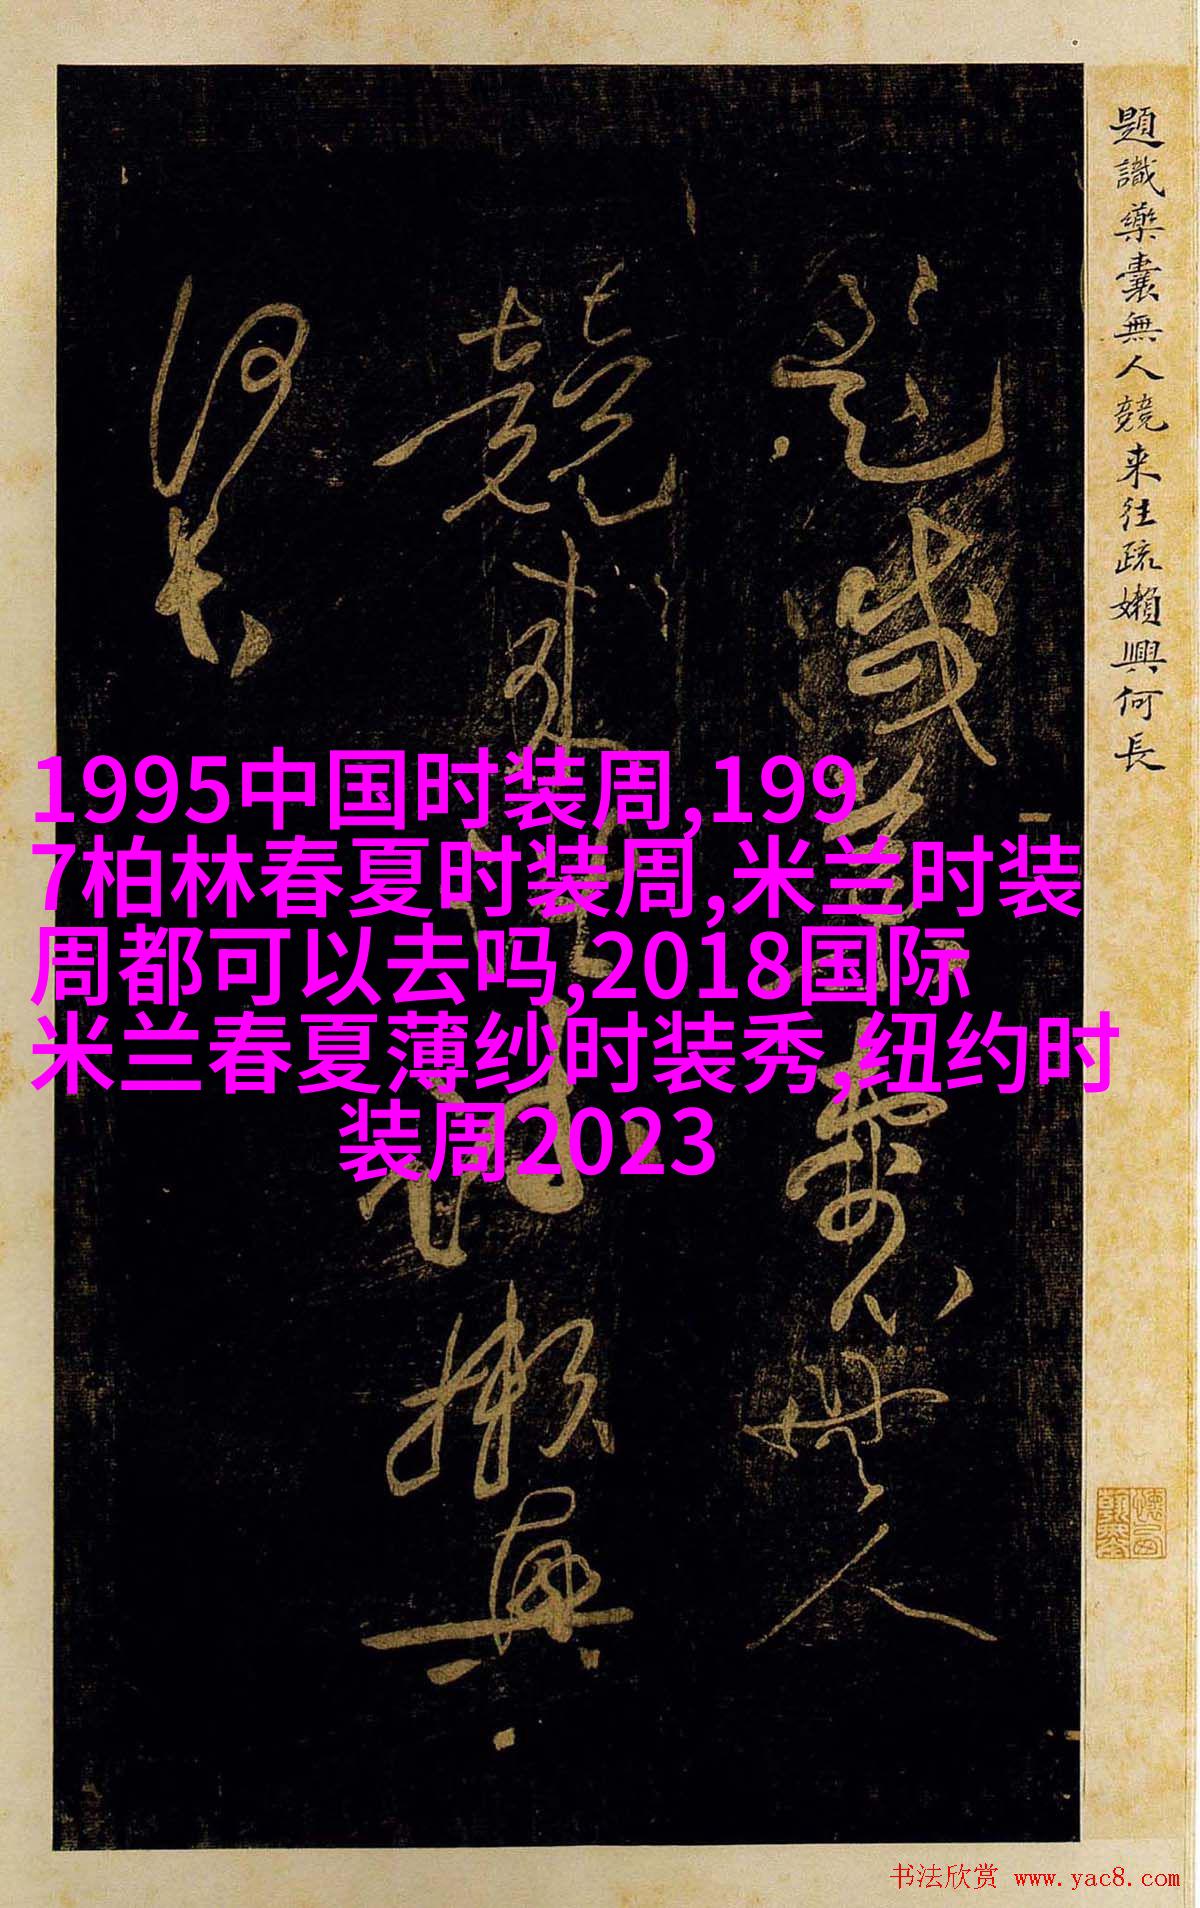 題識藥囊無人競来往疏嬾興何長
題識藥囊無人
競來往疏懶興
何長
1995中国时装周,199
7柏林春夏时装周,米兰时装
周都可以去吗,2018国际
米兰春夏薄纱时装秀,纽约时
装周2023
书法欣赏 www.yac8.com